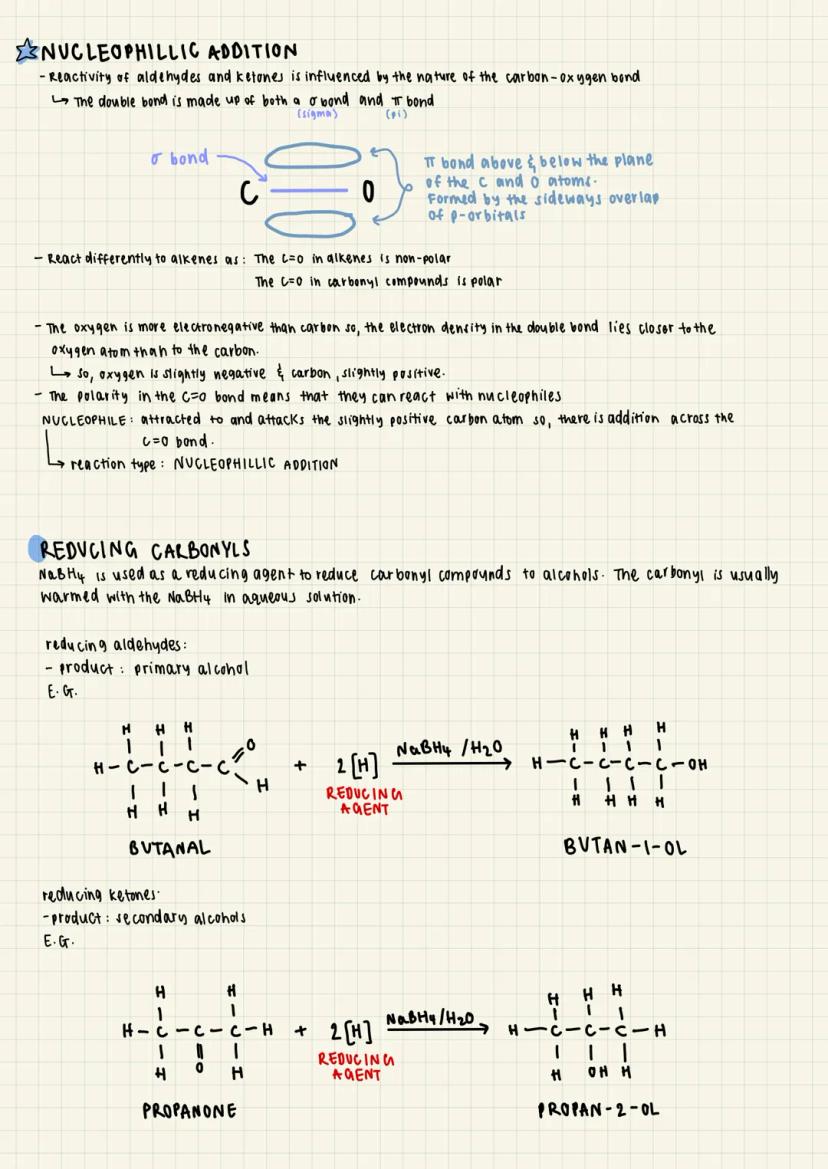 NUCLEOPHILLIC ADDITION
- Reactivity of aldehydes and ketones is influenced by the nature of the carbon-oxygen bond
↳ The double bond is made up of both a σ bond and π bond
(sigma) (pi)
σ bond
C O
π bond above & below the plane
of the C and O atoms.
Formed by the sideways overlap
of p-orbitals
- React differently to alkenes as: The C=O in alkenes is non-polar
The C=O in carbonyl compounds is polar
- The oxygen is more electronegative than carbon so, the electron density in the double bond lies closer to the
oxygen atom than to the carbon.
↳ So, oxygen is slightly negative & carbon, slightly positive.
- The polarity in the C=O bond means that they can react with nucleophiles
NUCLEOPHILE: attracted to and attacks the slightly positive carbon atom so, there is addition across the
C=O bond.
↳ reaction type: NUCLEOPHILLIC ADDITION
REDUCING CARBONYLS
NaBH4 is used as a reducing agent to reduce carbonyl compounds to alcohols. The carbonyl is usually
warmed with the NaBH4 in aqueous solution.
reducing aldehydes:
- product: primary alcohol
E.G.
H H H
H-C-C-C-C O
H
H H H
+ 2[H]
REDUCING
AGENT
NaBH4 /H2O
H H H H
H-C-C-C-C-OH
H H H H
BUTANAL
BUTAN-1-OL
reducing ketones.
- product: secondary alcohols
E.G.
H H
H-C-C-C-H
H O H
+ 2[H]
REDUCING
AGENT
NaBH4/H2O
H H H
H-C-C-C-H
H OH H
PROPANONE
PROPAN-2-OL